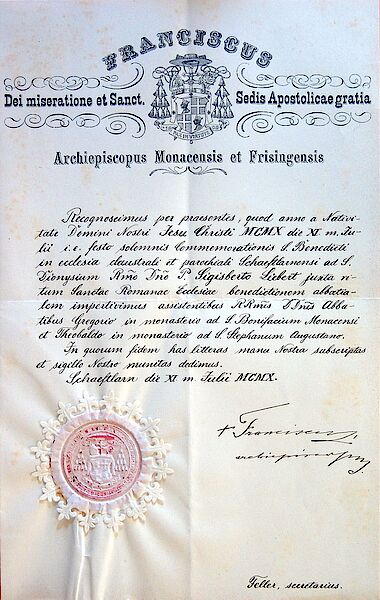 FRANCISCUS
Dei miseratione et Sanct. Sedis Apostolicae gratia
Archiepiscopus Monacensis et Frisingensis
Recognoscimus per praesentes, quod anno a Nativi-
tate Domini Nostri Jesu Christi MCMX die XI m. Ju-
lii i.e. festo solemnis Commemorationis S. Benedicti
in ecclesia claustrali et parochiali Schaeftlarnensi ad S.
Dionysium Rmo Dno P. Sigisberto Liebert juxta ri-
tum Sanctae Romanae Ecclesiae benedictionem abbatia-
lem impertivimus assistentibus RRmis DDnis Abba-
tibus Gregorio in monasterio ad S. Bonifacium Monacensi
et Theobaldo in monasterio ad S. Stephanum Augustano.
In quorum fidem has litteras manu Nostra subscriptas
et sigillo Nostro munitas dedimus.
Schaeftlarn die XI m. Julii MCMX.
+ Franciscus
Teller, secretarius.